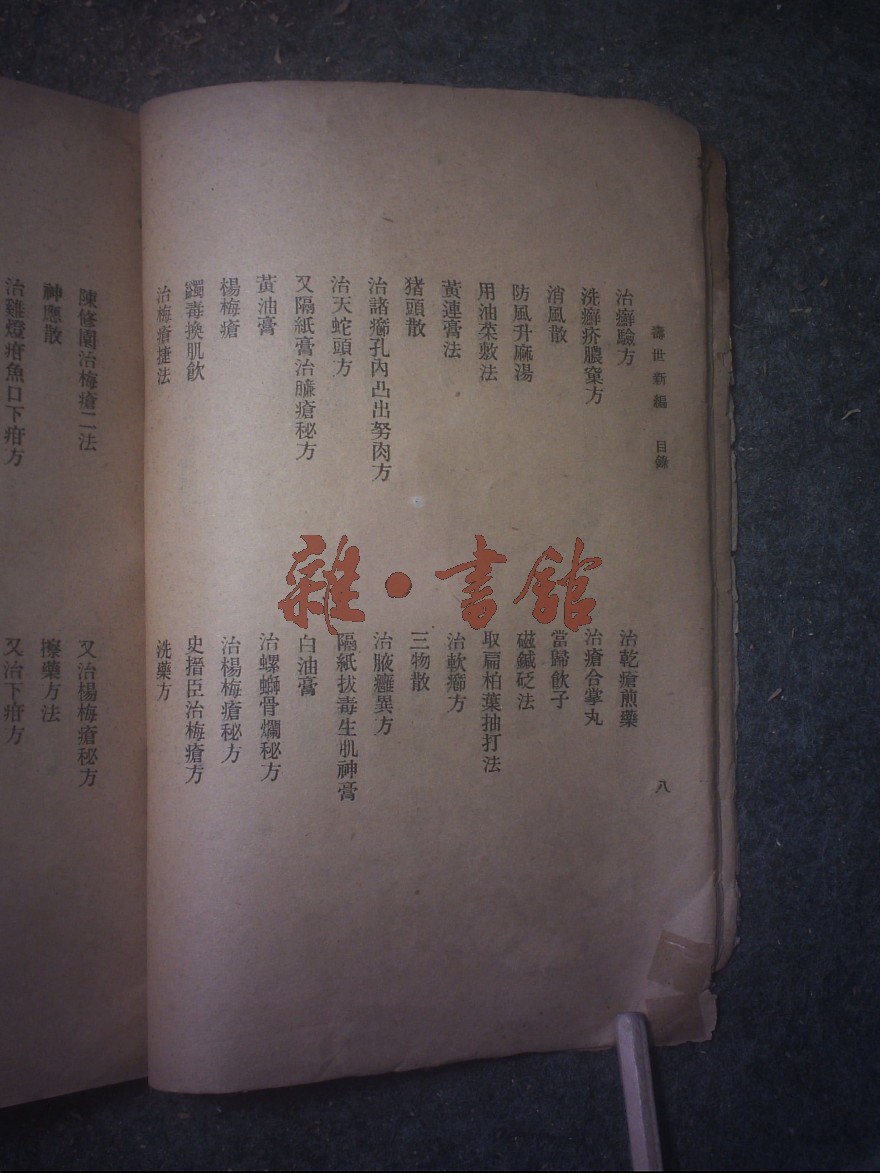 壽世新編 目錄 八
治癬驗方 治乾瘡煎藥
洗癬疥膿窠方 治瘡合掌丸
消風散 當歸飲子
防風升麻湯 磁鍼砭法
用油菜敷法 取扁柏葉抽打法
黃連膏法 治軟癤方
猪頭散 三物散
治諸癤孔內凸出努肉方 治腋癰異方
治天蛇頭方 隔紙拔毒生肌神膏
又隔紙膏治臁瘡秘方 白油膏
黃油膏 治螺螄骨爛秘方
楊梅瘡 治楊梅瘡秘方
蠲毒換肌飲 史搢臣治梅瘡方
治梅瘡捷法 洗藥方
陳修園治梅瘡二法 又治楊梅瘡秘方
神應散 擦藥方法
治雞燈疳魚口下疳方 又治下疳方
雜·書館